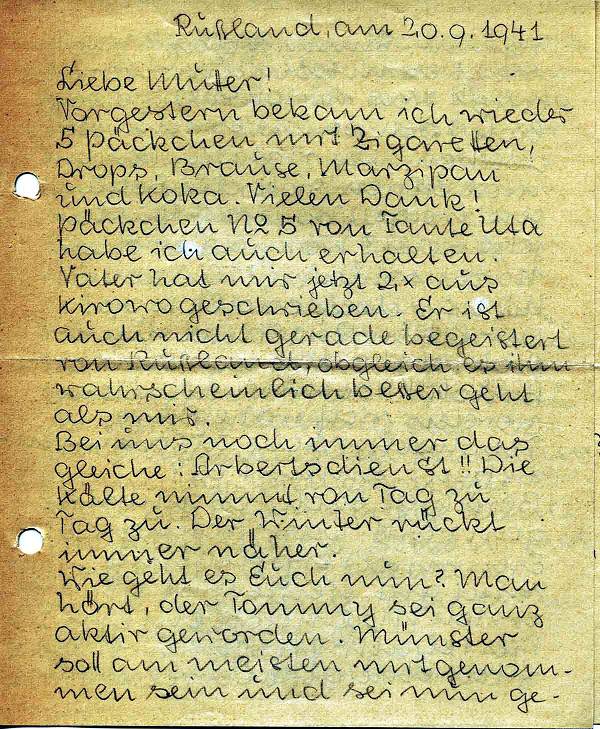 Rußland, am 20.9.1941
Liebe Mutter!
Vorgestern bekam ich wieder
5 Päckchen mit Zigaretten,
Drops, Brause, Marzipan
und Koka. Vielen Dank!
Päckchen No 5 von Tante Uta
habe ich auch erhalten.
Vater hat mir jetzt 2x aus
Kirowo geschrieben. Er ist
auch nicht gerade begeistert
von Rußland, obgleich es ihm
wahrscheinlich besser geht
als mir.
Bei uns noch immer das
gleiche: Arbeitsdienst!! Die
Kälte nimmt von Tag zu
Tag zu. Der Winter rückt
immer näher.
Wie geht es Euch nun? Man
hört, der Tommy sei ganz
aktiv geworden. Münster
soll am meisten mitgenom-
men sein und sei nun ge-